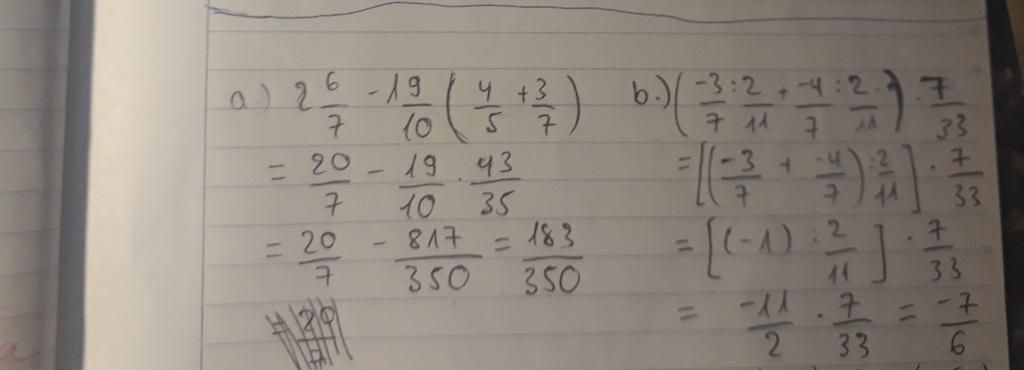 a.) 2 6/7 - 19/10 ( 4/5 + 3/7 )
= 20/7 - 19/10 . 43/35
= 20/7 - 817/350 = 183/350
b.) ( -3/7 : 2/11 + -4/7 : 2/11 ) . 7/33
= [ ( -3/7 + -4/7 ) : 2/11 ] . 7/33
= [ (-1) : 2/11 ] . 7/33
= -11/2 . 7/33 = -7/6